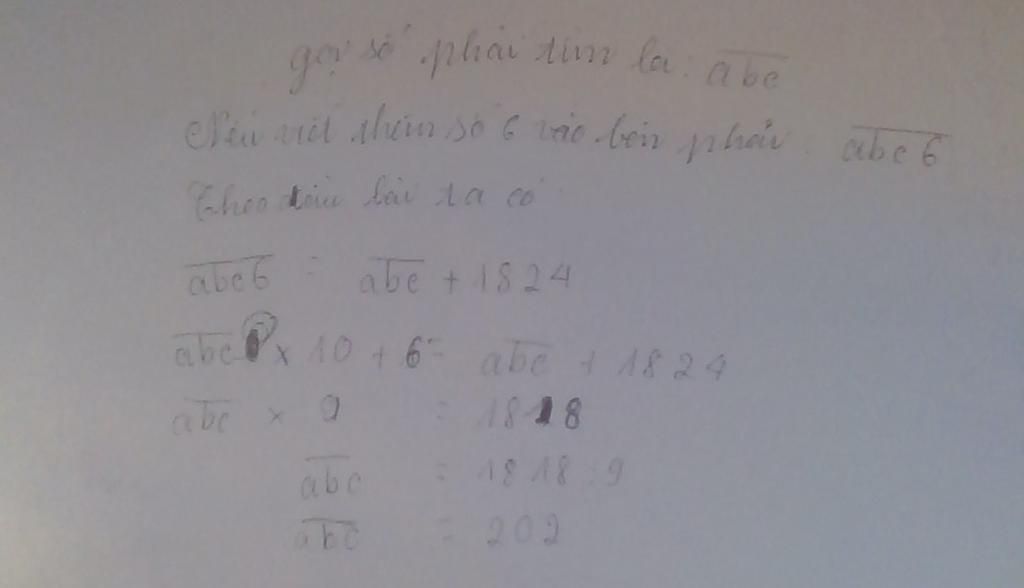 gọi số phải tìm là: abc
Nếu viết thêm số 6 vào bên phải: abc6
Theo đầu bài ta có
abc6 = abc + 1824
abc x 10 + 6 = abc + 1824
abc x 9 = 1818
abc = 1818 : 9
abc = 202